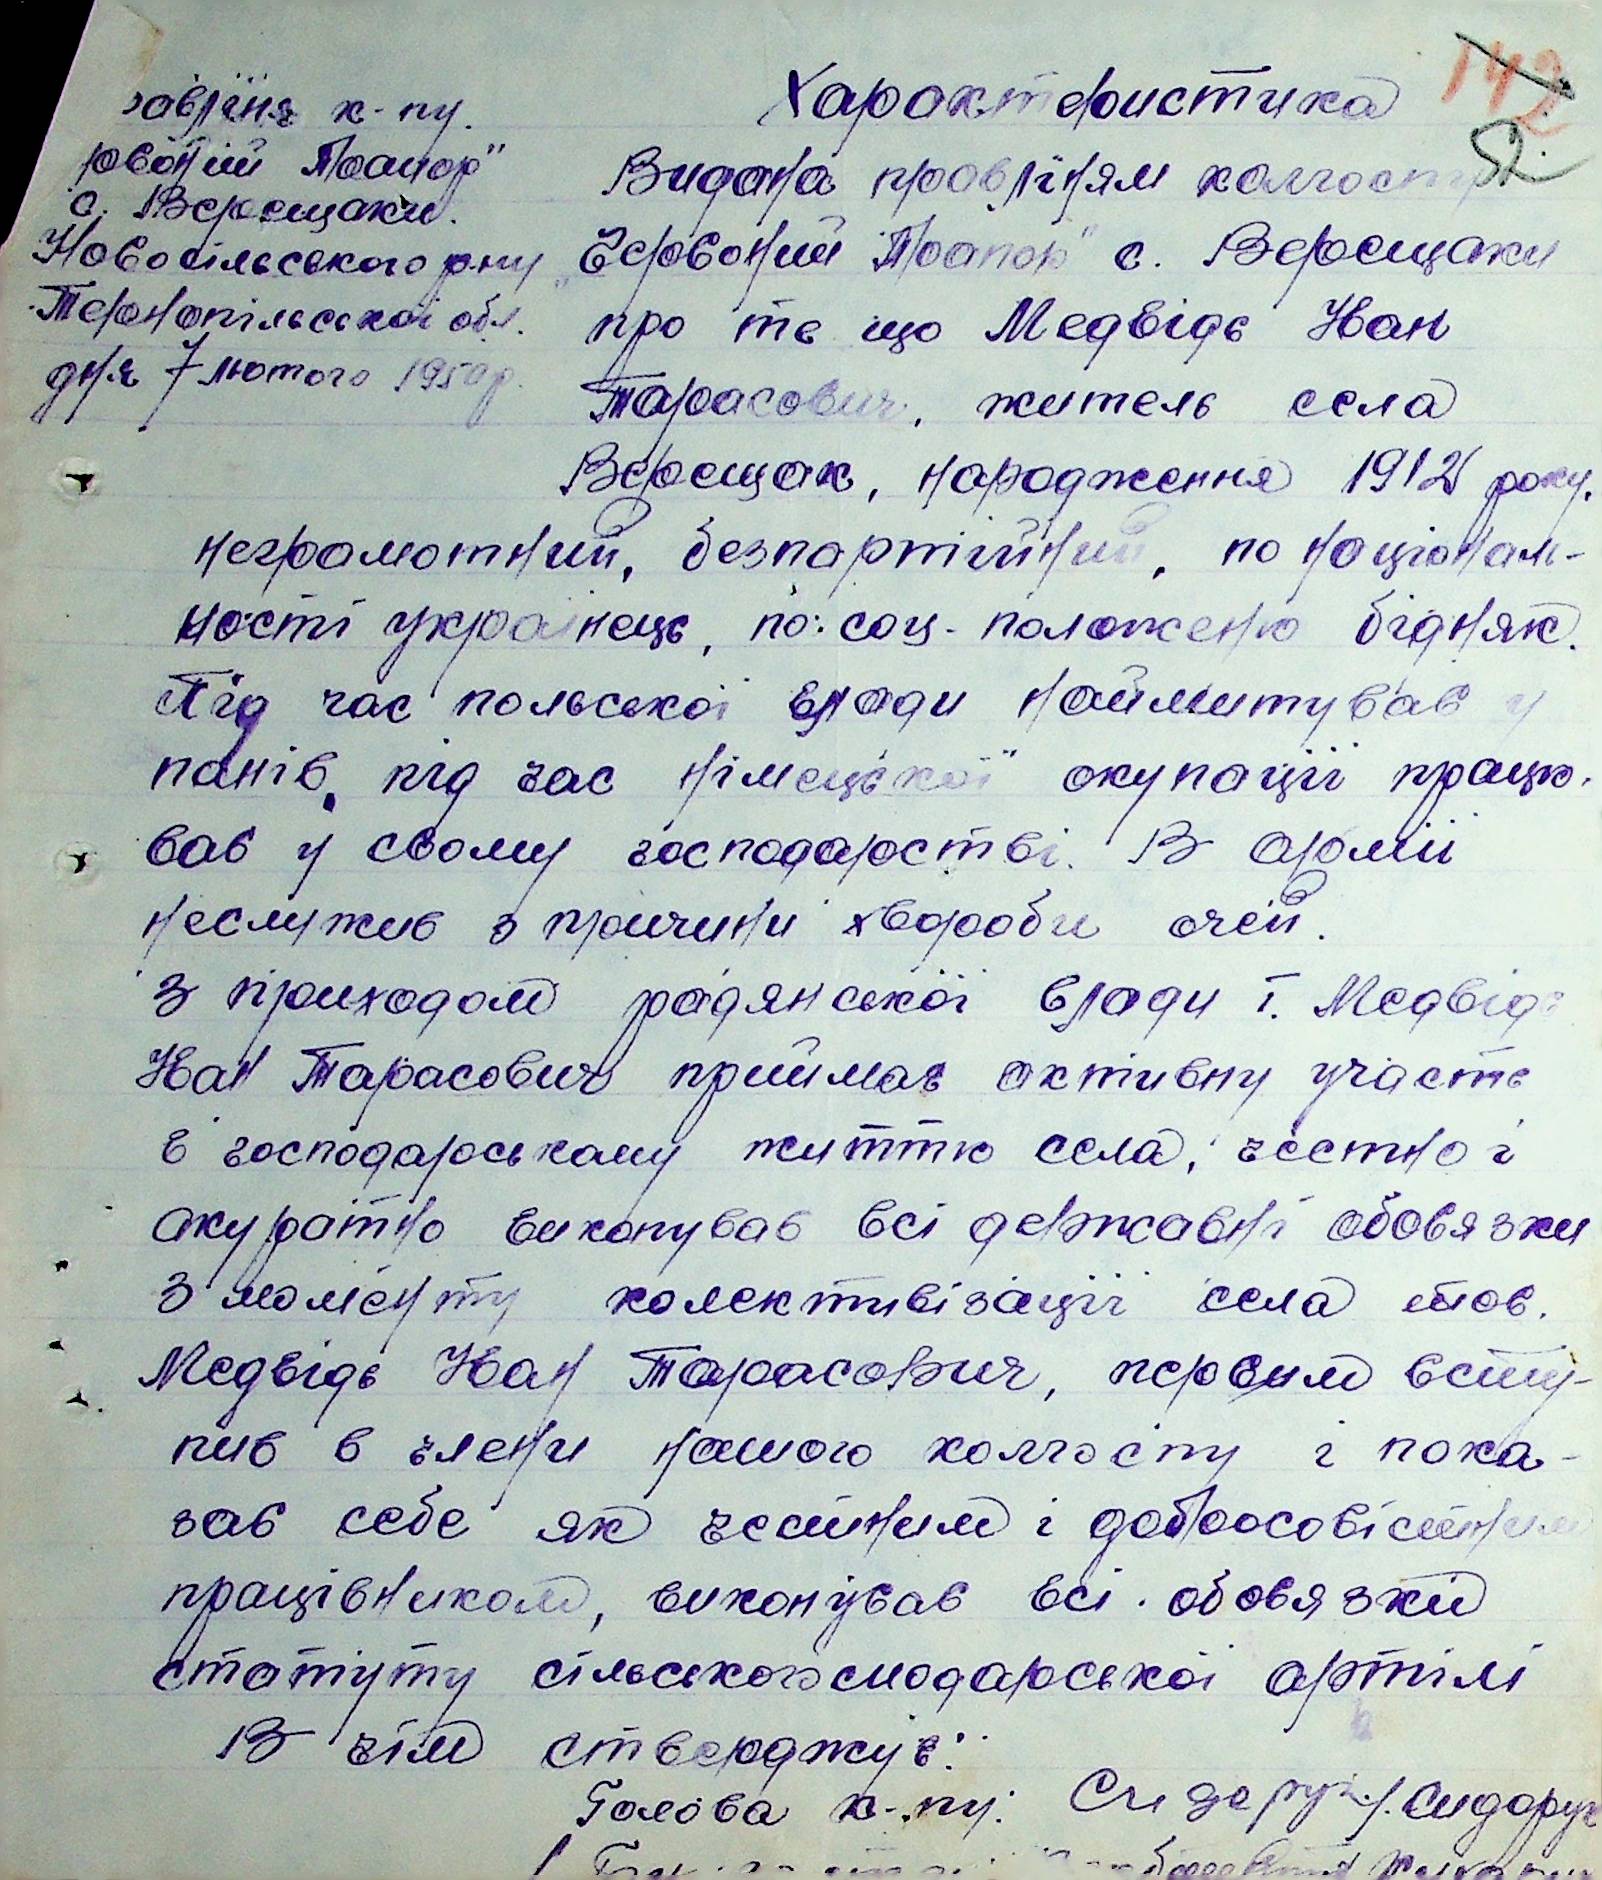 Характеристика
142
52.
авліня к-пу.
рвоний Прапор"
с. Верещаки.
Новосільського р-ну
Тернопільської обл.
дня 7 лютого 1950 р.
Видана правліням колгоспу
„Червоний Прапор" с. Верещаки
про те що Медвідь Иван
Тарасович, житель села
Верещак, народження 1912 року.
неграмотний, безпартійний, по націонал-
ності українець, по соц- положеню бідняк.
Під час польської влади наймитував у
панів, під час німецької окупації працю-
вав у свому господарстві. В армії
неслужив з причини хвороби очей.
З приходом радянської влади т. Медвідь
Иван Тарасович приймав активну участь
в господарському життю села, чесно і
акуратно виконував всі державні обовязки
З моменту колективізації села тов.
Медвідь Иван Тарасович, первим всту-
пив в члени нашого колгоспу і пока-
зав себе як чесним і добросовісним
працівником, виконував всі обовязки
статуту сільськогосподарської артілі
В чім стверджує:
Голова к-пу: Сидорук /. Сидорук